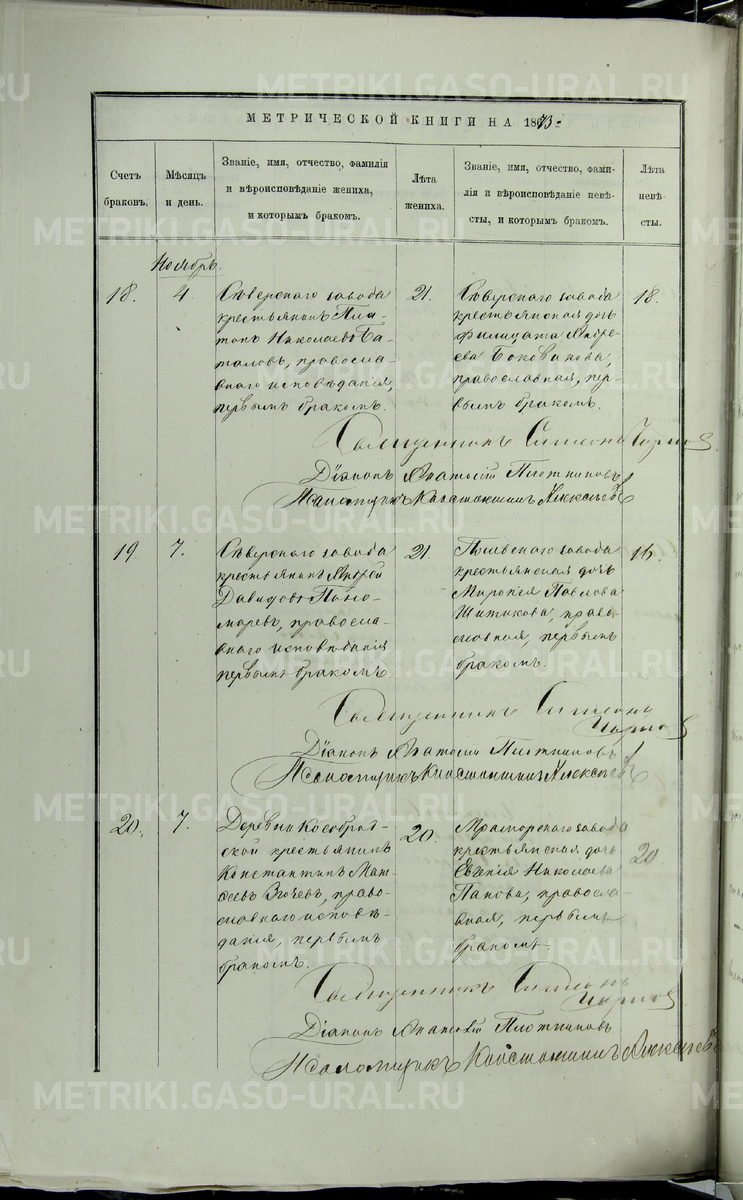 МЕТРИЧЕСКОЙ КНИГИ НА 18
Счетъ браковъ.
Мѣсяцъ и день.
Званіе, имя, отчество, фамилія
и вѣроисповѣданіе жениха,
и которымъ бракомъ.
Лѣта жениха.
Званіе, имя, отчество, фами-
лія и вѣроисповѣданіе невѣ-
сты, и которымъ бракомъ.
Лѣта невѣ-
сты.
Ноябрь.
18.
4
Сѣверскаго завода
крестьянинъ Пла-
тонъ Николаевъ Ба-
таловъ, правосла-
внаго исповѣданія,
первымъ бракомъ.
21.
Сѣверскаго завода
крестьянская дочь
Филицата Андре-
ева Боковикова,
православная, пер-
вымъ бракомъ.
18.
Священникъ Симеонъ
Діаконъ Анатолій Плотниковъ
Псаломщикъ Константинъ Алексѣевъ
19.
7.
Сѣверскаго завода
крестьянинъ Андрей
Давидовъ Поно-
маревъ, правосла-
внаго исповѣданія
первымъ бракомъ.
21.
завода
крестьянская дочь
Миропія Павлова
Шитикова, право-
славная, первымъ
бракомъ.
16.
Священникъ Симеонъ
Діаконъ Анатолій Плотниковъ
Псаломщикъ Константинъ Алексѣевъ
20.
7.
Деревни Кособрод-
ской крестьянинъ
Константинъ Мат-
ѳеевъ право-
славнаго исповѣ-
данія, первымъ
бракомъ.
20.
Мраморскаго завода
крестьянская дочь
Евгенія Николаева
Панова, правосла-
вная, первымъ
бракомъ.
20
Священникъ Симеонъ
Діаконъ Анатолій Плотниковъ
Псаломщикъ Константинъ Алексѣевъ
METRIKI.GASO-URAL.RU